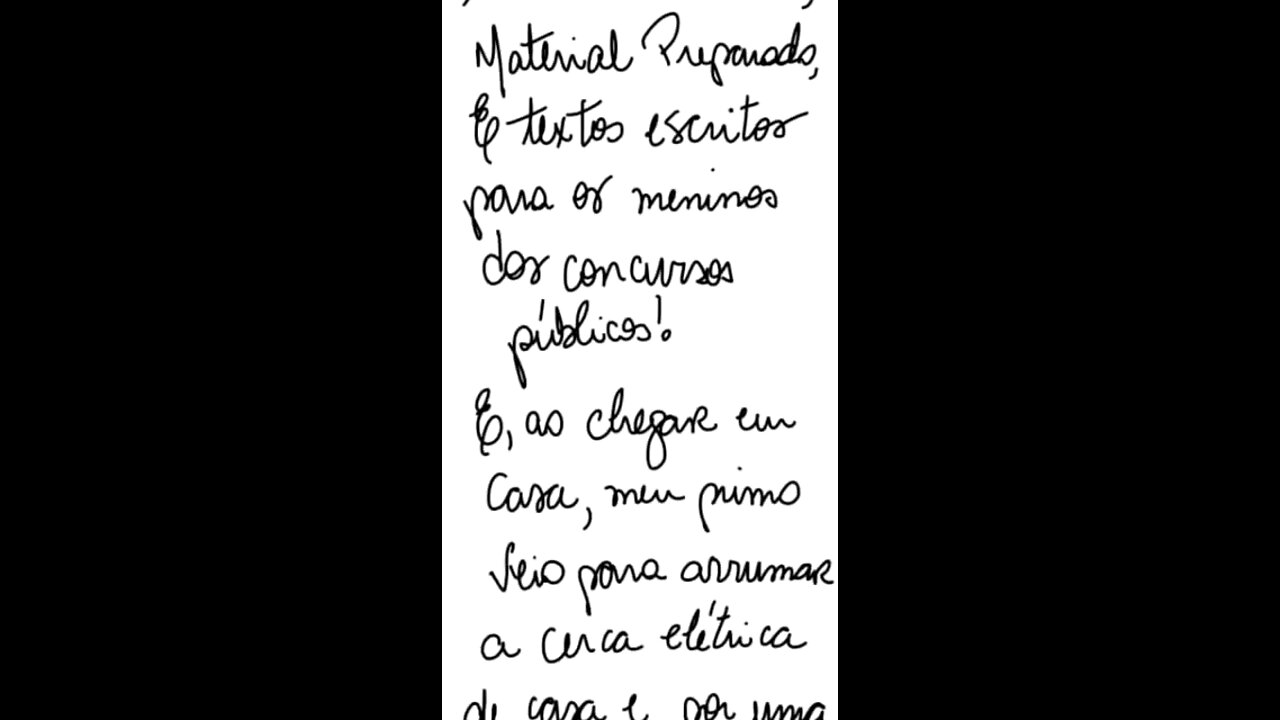 Material Preparado,
E textos escritos
para os meninos
dos concursos
públicos!
E, ao chegar em
casa, meu primo
veio para arrumar
a cerca elétrica
de casa e por uma